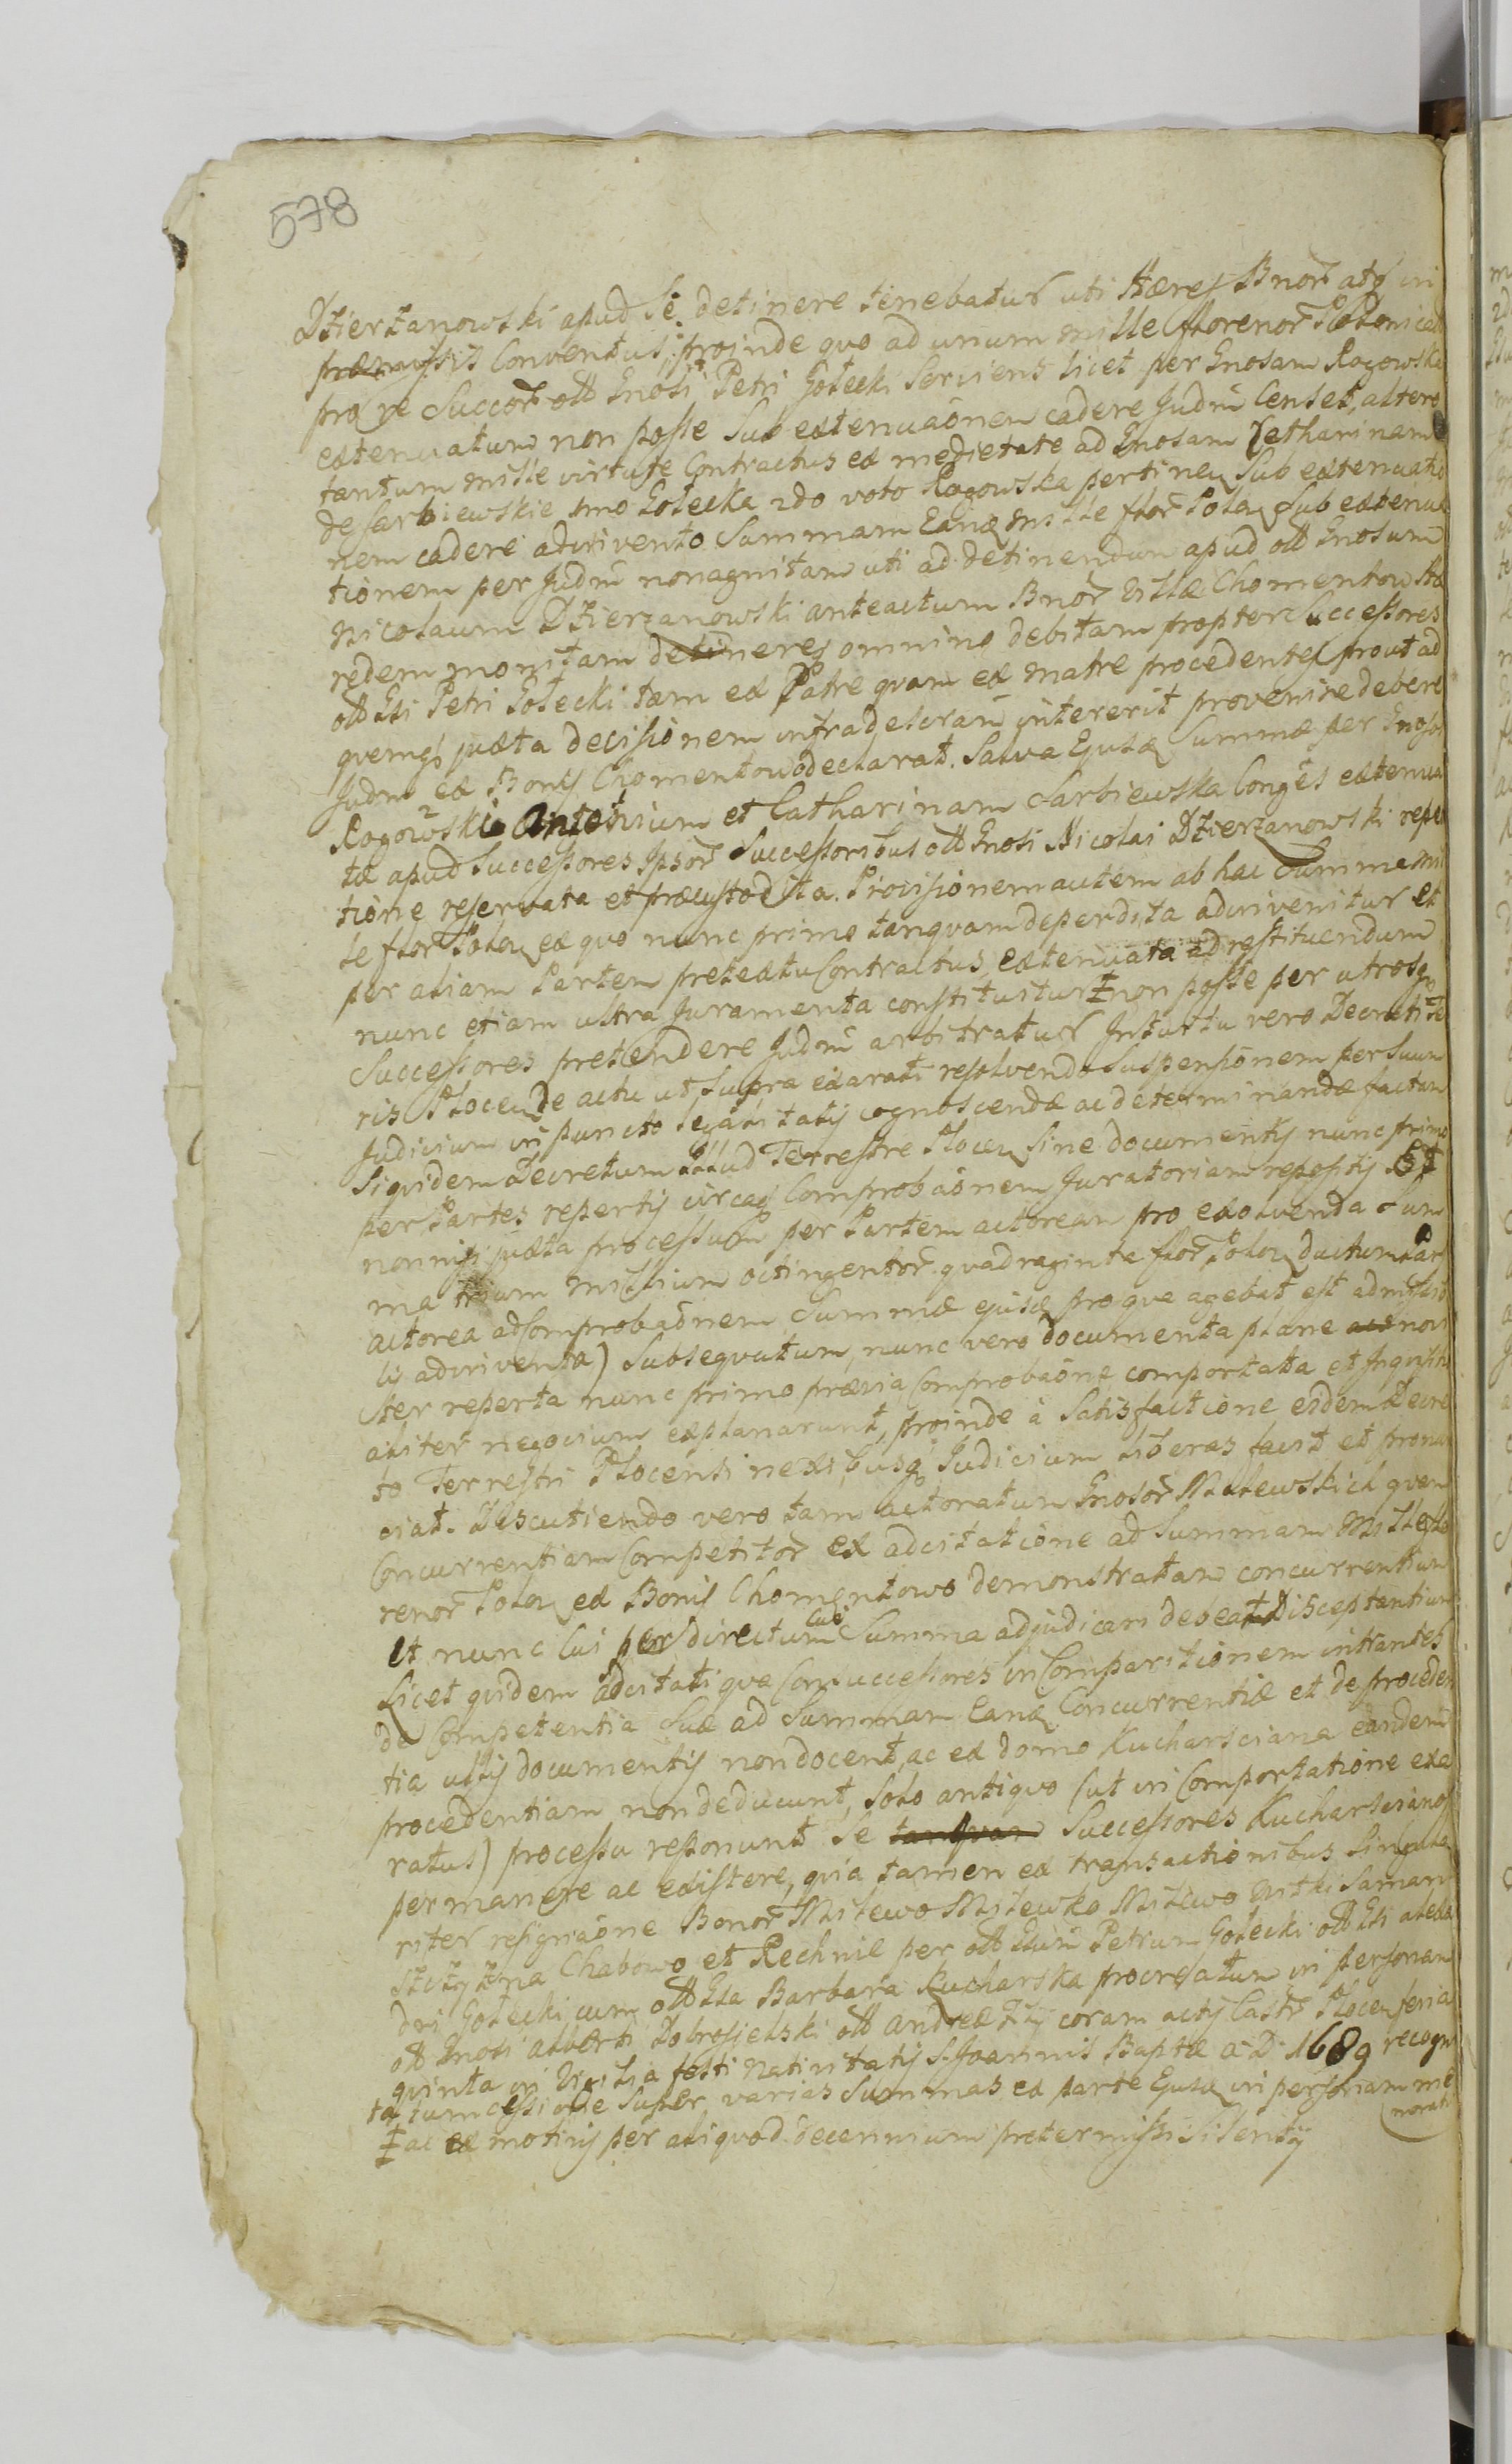 578
Dzierzanowski apud Se detinere tenebatur uti Hæres Bnor̄ atq̨ in
præmissis Conventus, proinde quo ad unum mille florenor̄ Polonical
pro re Succor̄ olł Gnosi Petri Gołecki Serviens licet per Gnosam Rogowska
extenuatum non posse Sub extenuaōnem cadere Judm̄ Censet, altero
tantum mille virtute Contractus ex medietate ad Gnosam Catharinam
de Sarbiewskie 1mo Gołecka 2do voto Rogowska pertinen Sub extenuatio
nem cadere adinvento Summam Eanq̨ mille flor̄ Polon Sub extenua
tionem per Judm̄ nonagnitam uti ad detinendum apud olł Gnosum
Nicolaum Dzierzanowski anteactum Bnor̄ Villæ Chomentow Hæ
redem monitam detineres omnino debitam propter Successores
olł Gsi Petri Gołecki tam ex Patre quam ex Matre procedentes prout ad
quemq̨ juxta decisionem infra declaran̄ intererit provenire debere
Judm̄ ex Bonis Chomentowo declarat. Salva Ejusq̨ Summæ per Gnosos
Rogowski Antonium et Catharinam Sarbiewska Conges extenua
tæ apud Successores Ipsor̄ Successoribus olł Gnosi Nicolai Dzierzanowski repe
tione reservata et præcustodita. Provisionem autem ab hac Summa mil
le flor Polon ex quo nunc primo tanquam deperdita adinvenitur et
per aliam Partem pretextu Contractus extenuata ad restituendum
nunc etiam ultra Juramenta constituitur ‡ non posse per utrosq̨
Successores pretendere Judm̄ arbitratur Intuitu vero Decreti Te
ris Plocen de actu ut Supra exarati resolvendo Suspensionem per Suum
Judicium in puncto legalitatis cognoscendæ ac determinandæ factam
Siquidem Decretum Illud Terrestre Plocen Sine documentis nunc primo
per Partes repertis circaq̨ Comprobaōnem Juratoriam repositis Et
nonnisi juxta processum per Partem actoream pro exolvenda Sum
ma trium millium octingentor̄ quadraginta flor̄ Polon ductum Par
actorea ad Comprobaōnem Summæ ejusq̨ pro qua agebat est admissio
lis adinventa) Subsequutum, nunc vero documenta plane novi
ter reperta nunc primo prævia Comprobaōne comportata et Inquisiti
aliter negocium explanarunt, proinde a Satisfactione eidem Decre
to Terrestri Plocensi nexibusq̨ Judicium liberas facit et pronun
ciat. Discutiendo vero tam actoratum Gnosor̄ Malewskich quam
Concurrentiam Competitor̄ ex adcitatione ad Summam Mille flo
renor̄ Polon ex Bonis Chomentowo demonstratam concurrentium
et nunc cui per directum cui Summa adjudicari debeat Disceptantium
Licet quidem adcitati qva Consuccessores in Comparitionem intrantes
de Competentia Sua ad Summam Eanq̨ Concurrentiæ et de proceden
tia ullis documentis non docent, ac ex domo Kucharsciana eandem
procedentiam non deducunt, Solo antiquo (ut in Comportatione exa
ratus) processu reponunt Se tanquam Successores Kucharscianos
permanere ac existere, quia tamen ex transactionibus Singula
riter resignaōne Bonor̄ Milewo Milewko Milewo Mitki Saman
Szczyzna Chabowo et Rechnie per olł Gsum̄ Petrum Gołecki olł Gsi alexa
dri Gołecki cum olł Gsa Barbara Kucharska procreatum in personam
olł Gnosi alberti Dobrosielski olł Andreæ Fily coram actis Castr̄ Plocen feria
quinta in Vigilia festi Nativitatis S. Joannis Baptæ A: D: 1689 recogni
ta tum cessione Super varias Summas ex parte Ejusq̨ in personam me
morati
‡ ac ex motivis per aliquod decennium prætermissi Silentij